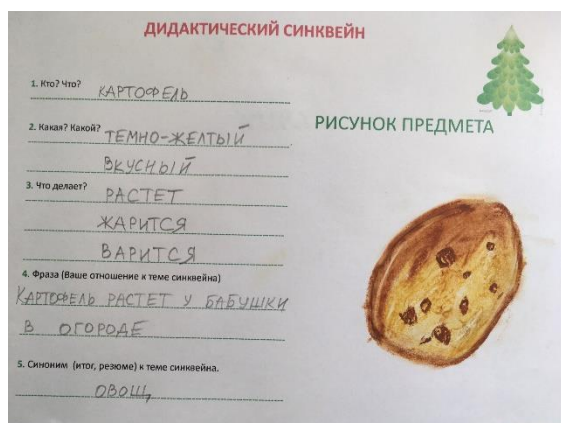 ДИДАКТИЧЕСКИЙ СИНКВЕЙН
1. Кто? Что? КАРТОФЕЛЬ
2. Какая? Какой? ТЕМНО-ЖЕЛТЫЙ
ВКУСНЫЙ
3. Что делает? РАСТЕТ
ЖАРИТСЯ
ВАРИТСЯ
4. Фраза (Ваше отношение к теме синквейна)
КАРТОФЕЛЬ РАСТЕТ У БАБУШКИ
В ОГОРОДЕ
5. Синоним (итог, резюме) к теме синквейна.
ОВОЩ
РИСУНОК ПРЕДМЕТА